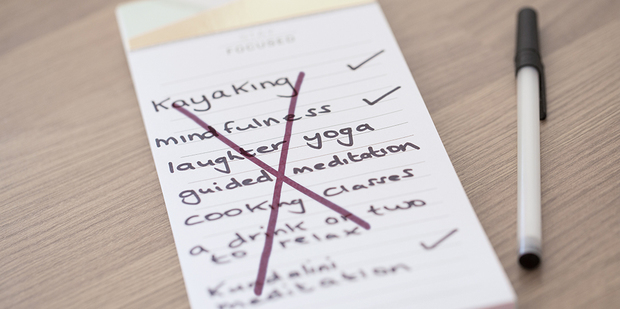 FOCUSED
kayaking
mindfulness
laughter yoga
guided meditation
cooking classes
a drink or two
to relax
Kundalini
meditation